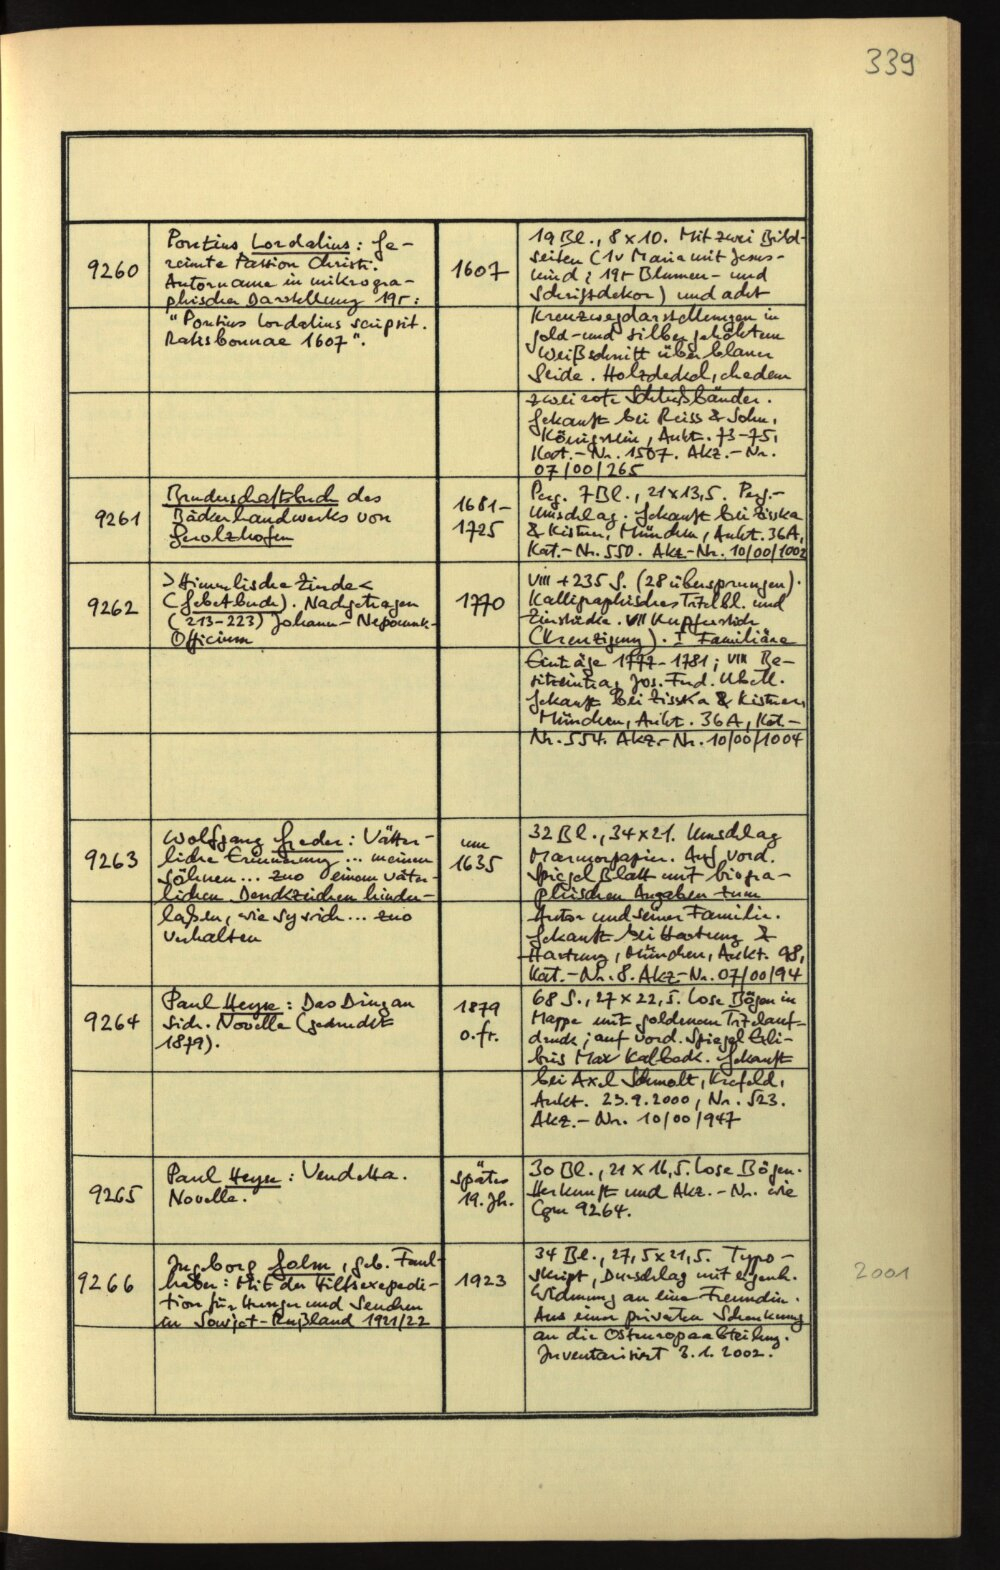 339
9260
Pontius Lordalius: Ge-
reimte Passion Christi.
Autorname in mikrogra-
phischer Darstellung 19r:
"Pontius Lordalius scripsit.
Ratisbonnae 1607".
1607
19 Bl., 8 x 10. Mit zwei Bild-
seiten (1v Maria mit Jesus-
kind; 19r Blumen- und
Schriftdekor) und acht
Kreuzwegdarstellungen in
gold- und silbergehöhtem
Weißschnitt über blauer
Seide. Holzdeckel, ehedem
zwei rote Schließbänder.
Gekauft bei Reiss & Sohn,
Königstein, Aukt. 73-75,
Kat.-Nr. 1507. Akz.-Nr.
07/00/265
9261
Bruderschaftsbuch des
Bäckerhandwerks von
Gerolzhofen
1681-
1725
Perg. 7 Bl., 21 x 13,5. Perg.-
Umschlag. Gekauft bei Zisska
& Kistner, München, Aukt. 36A,
Kat.-Nr. 550. Akz.-Nr. 10/00/1002
9262
>Himmlische Zierde<
(Gebetbuch). Nachgetragen
(213-223) Johann-Nepomuk-
Officium
1770
VIII + 235 S. (28 übersprungen).
Kalligraphisches Titelbl. und
Zierstücke. VII Kupferstich
(Kreuzigung). I Familiäre
Einträge 1777-1781; VIII Be-
sitzeintrag Jos. Ferd.
Gekauft bei Zisska & Kistner
München, Aukt. 36A, Kat.-
Nr. 554. Akz.-Nr. 10/00/1004
9263
Wolfgang Greder: Vätter-
liche Erinnerung ... meinen
Söhnen ... zuo einem väter-
lichen Denckzeichen hinder-
laßen, wie sy sich ... zuo
verhalten
um
1635
32 Bl., 34 x 21. Umschlag
Marmorpapier. Auf vord.
Spiegel Blatt mit biogra-
phischen Angaben zum
Autor und seiner Familie.
Gekauft bei Hartung &
Hartung, München, Aukt. 98,
Kat.-Nr. 8. Akz.-Nr. 07/00/94
9264
Paul Heyse: Das Ding an
sich. Novelle (gedruckt
1879).
1879
o.fr.
68 S., 27 x 22,5. Lose Bögen in
Mappe mit goldenem Titelauf-
druck; auf vord. Spiegel Exli-
bris Max Kalbeck. Gekauft
bei Axel Schmolt, Krefeld,
Aukt. 23.9.2000, Nr. 523.
Akz.-Nr. 10/00/947
9265
Paul Heyse: Vendetta.
Novelle.
spätes
19. Jh.
30 Bl., 21 x 16,5. Lose Bögen.
Herkunft und Akz.-Nr. wie
Cgm 9264.
9266
Ingeborg Holm, geb. Faul-
haber: Mit der Hilfsexpedi-
tion für Hunger und Seuchen
in Sowjet-Rußland 1921/22
1923
34 Bl., 27,5 x 21,5. Typo-
skript, Durschlag mit eigenh.
Widmung an eine Freundin.
Aus einer privaten Schenkung
an die Osteuropaabteilung.
Inventarisiert 3.1.2002.
2001